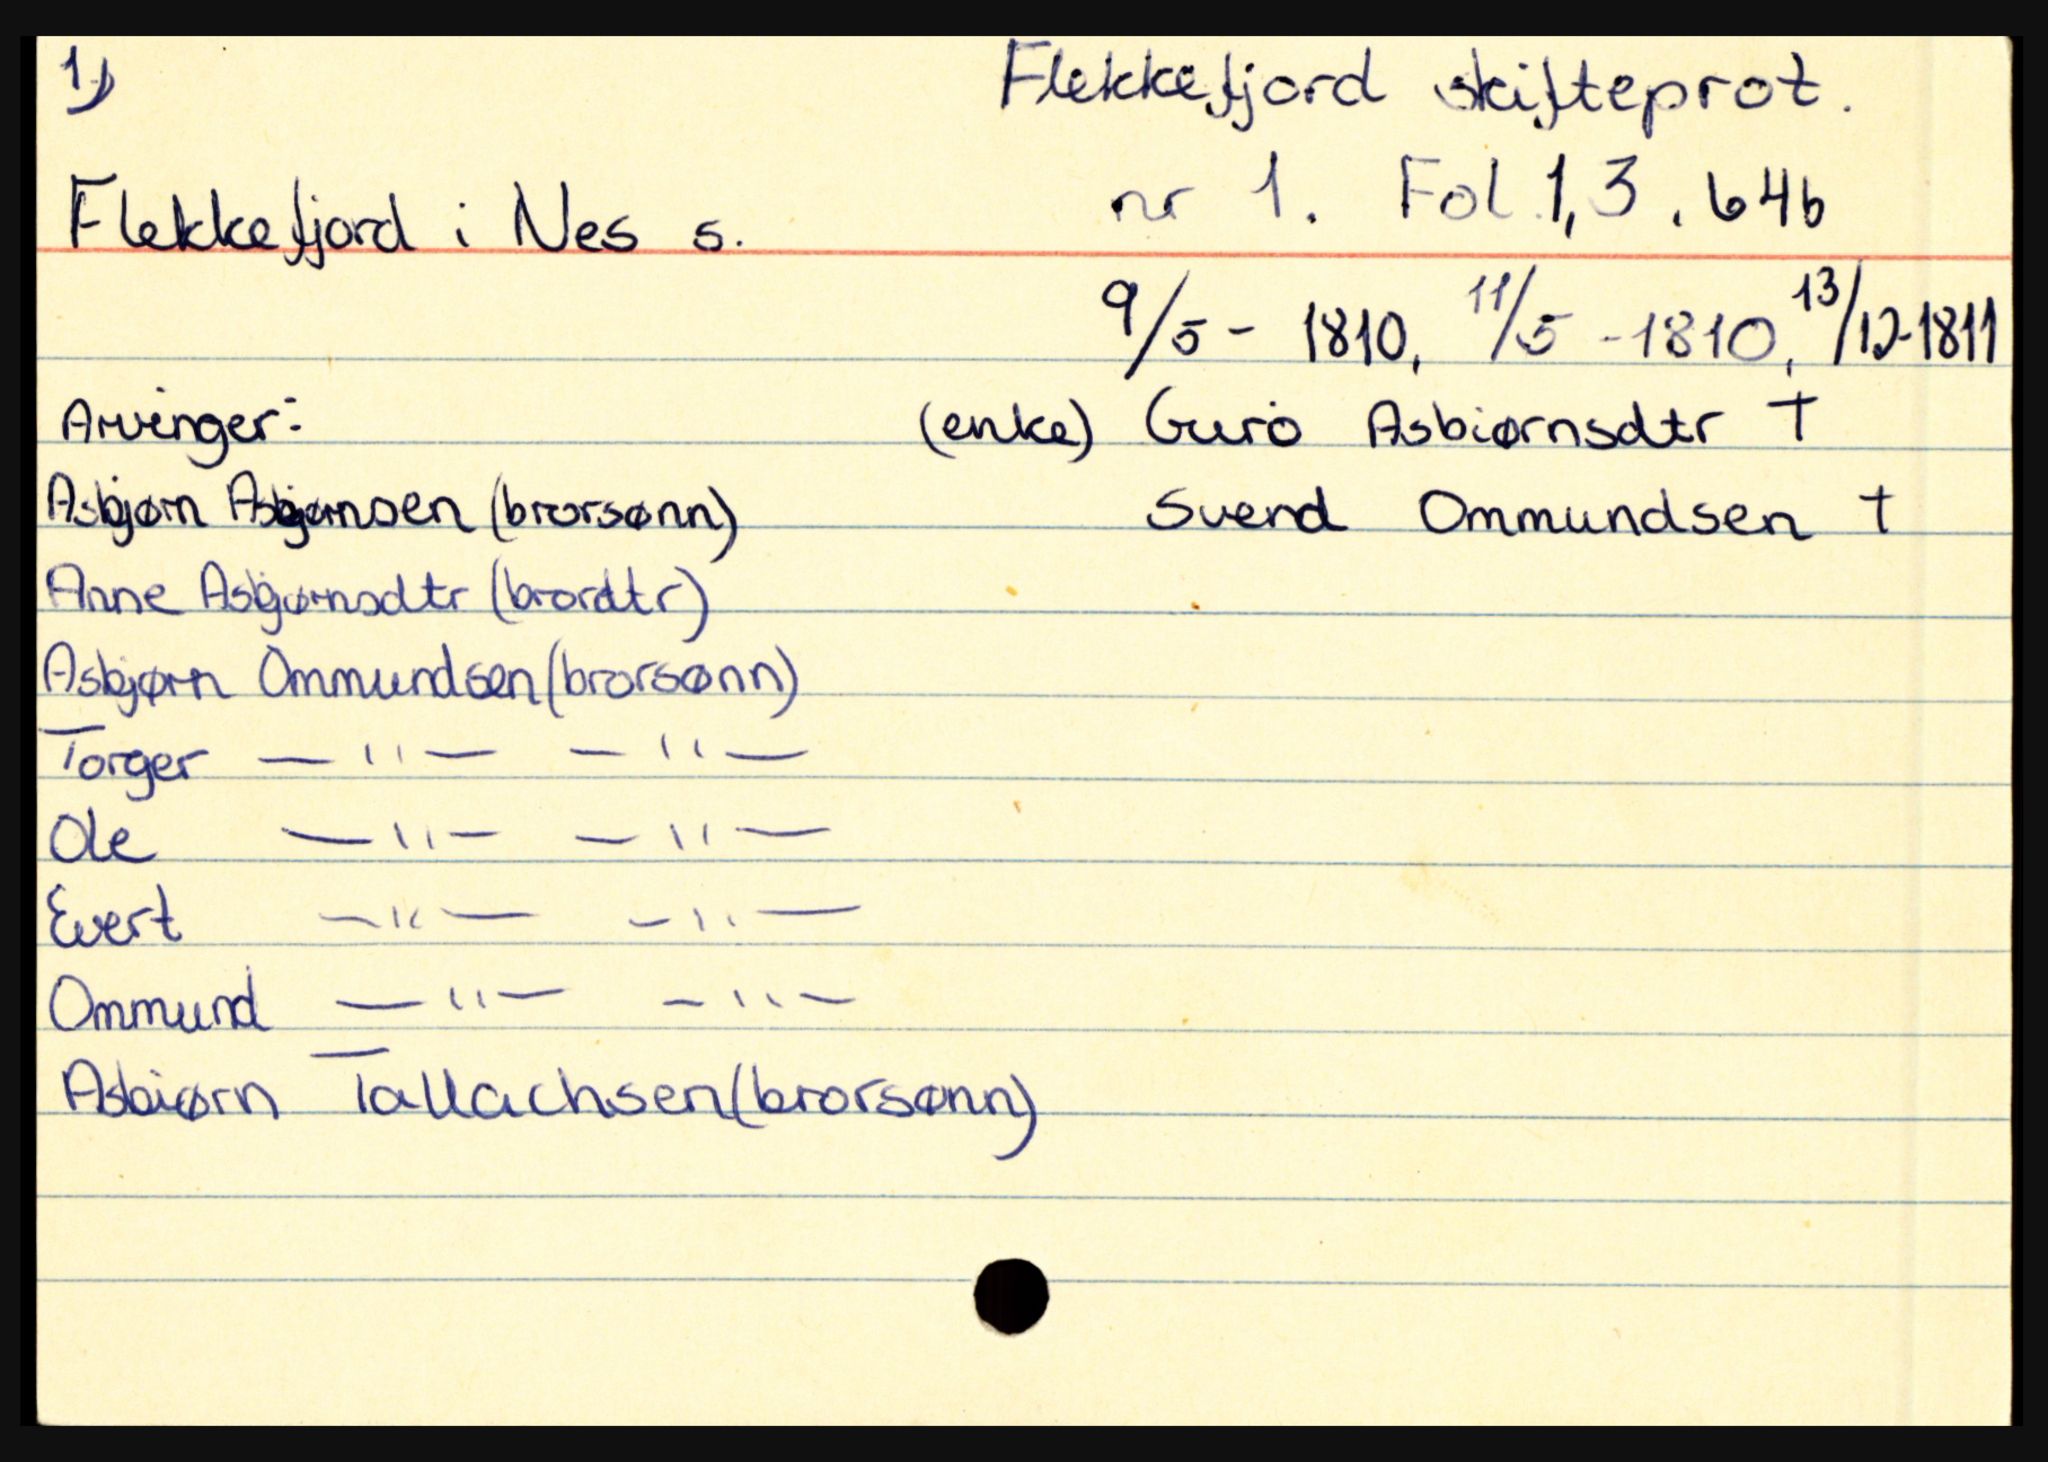 1)
Flekkefjord skifteprot.
nr 1. Fol 1, 3, 64b
Flekkefjord i Nes s.
9/5 - 1810, 11/5 - 1810, 13/12-1811
Arvinger:
(enke) Guro Asbiørnsdtr †
Asbjørn Asbjørnsen (brorsønn)
Svend Ommundsen †
Anne Asbjørnsdtr (brordtr)
Asbjørn Ommundsen (brorsønn)
Torger — " — — " —
Ole — " — — " —
Evert — " — — " —
Ommund — " — — " —
Asbiørn Tallachsen (brorsønn)